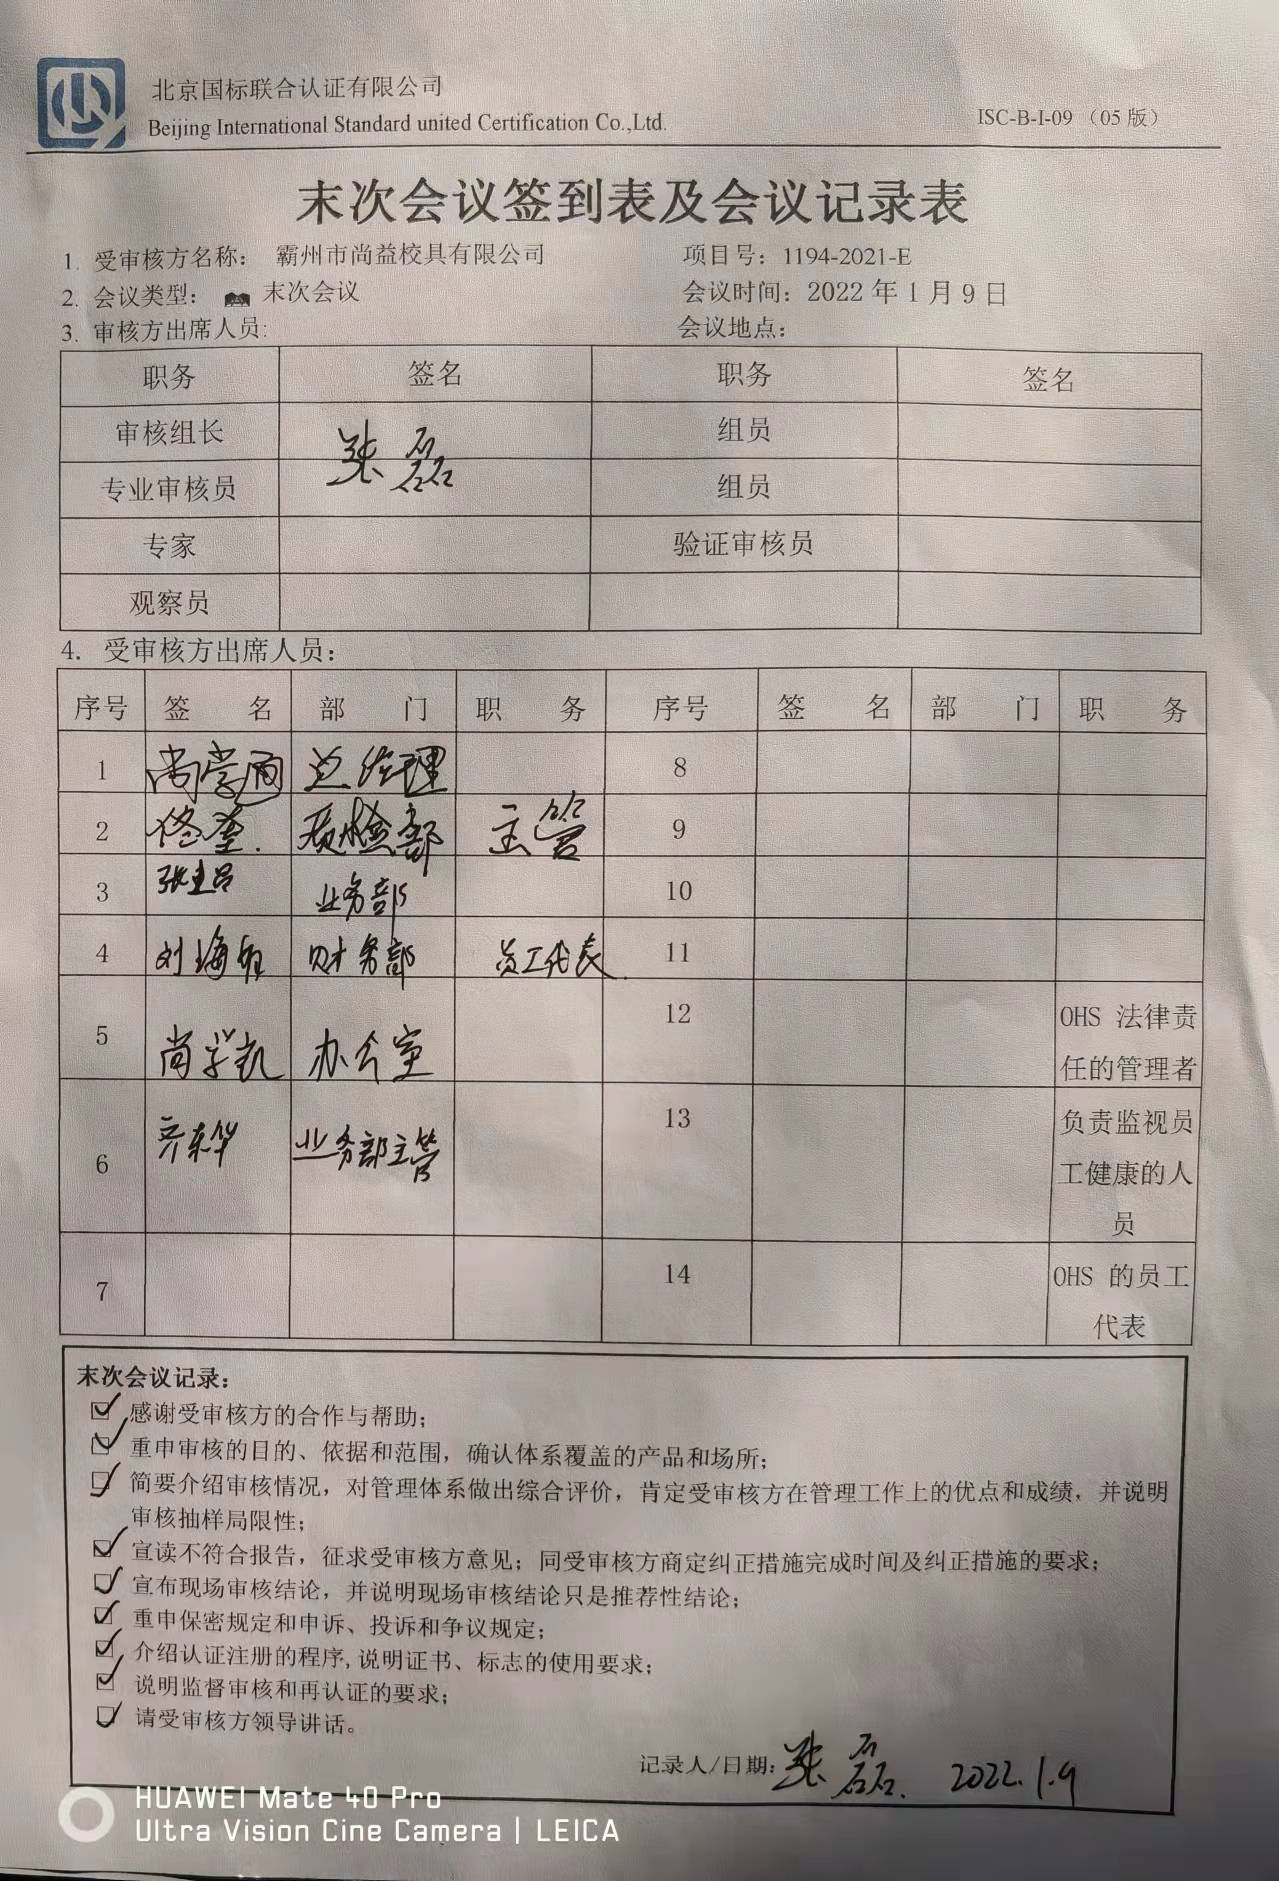 北京国标联合认证有限公司
Beijing International Standard united Certification Co.,Ltd.
ISC-B-I-09 （05 版）
末次会议签到表及会议记录表
1. 受审核方名称： 霸州市尚益校具有限公司 项目号：1194-2021-E
2. 会议类型： 末次会议 会议时间：2022 年 1 月 9 日
3. 审核方出席人员: 会议地点：
职务 签名 职务 签名
审核组长 张磊 组员
专业审核员 组员
专家 验证审核员
观察员
4. 受审核方出席人员：
序号 签 名 部 门 职 务 序号 签 名 部 门 职 务
1 尚学通 总经理 8
2 佟 质检部 主管 9
3 张 业务部 10
4 刘海 财务部 员工代表 11
5 尚学凯 办公室 12 OHS 法律责
任的管理者
6 齐东华 业务部主管 13 负责监视员
工健康的人
员
7 14 OHS 的员工
代表
末次会议记录：
感谢受审核方的合作与帮助；
重申审核的目的、依据和范围，确认体系覆盖的产品和场所；
简要介绍审核情况，对管理体系做出综合评价，肯定受审核方在管理工作上的优点和成绩，并说明
审核抽样局限性；
宣读不符合报告，征求受审核方意见；同受审核方商定纠正措施完成时间及纠正措施的要求；
宣布现场审核结论，并说明现场审核结论只是推荐性结论；
重申保密规定和申诉、投诉和争议规定；
介绍认证注册的程序,说明证书、标志的使用要求；
说明监督审核和再认证的要求；
请受审核方领导讲话。
记录人/日期：张磊. 2022.1.9
HUAWEI Mate 40 Pro
Ultra Vision Cine Camera | LEICA